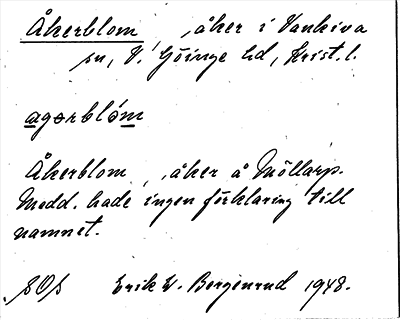 Åkerblom, åker i Vankiva
sn, V. Göinge hd, Krist. l.
agərblóm
Åkerblom, åker å Möllarp.
Medd. hade ingen förklaring till
namnet.
Erik W. Bergenrud 1948.